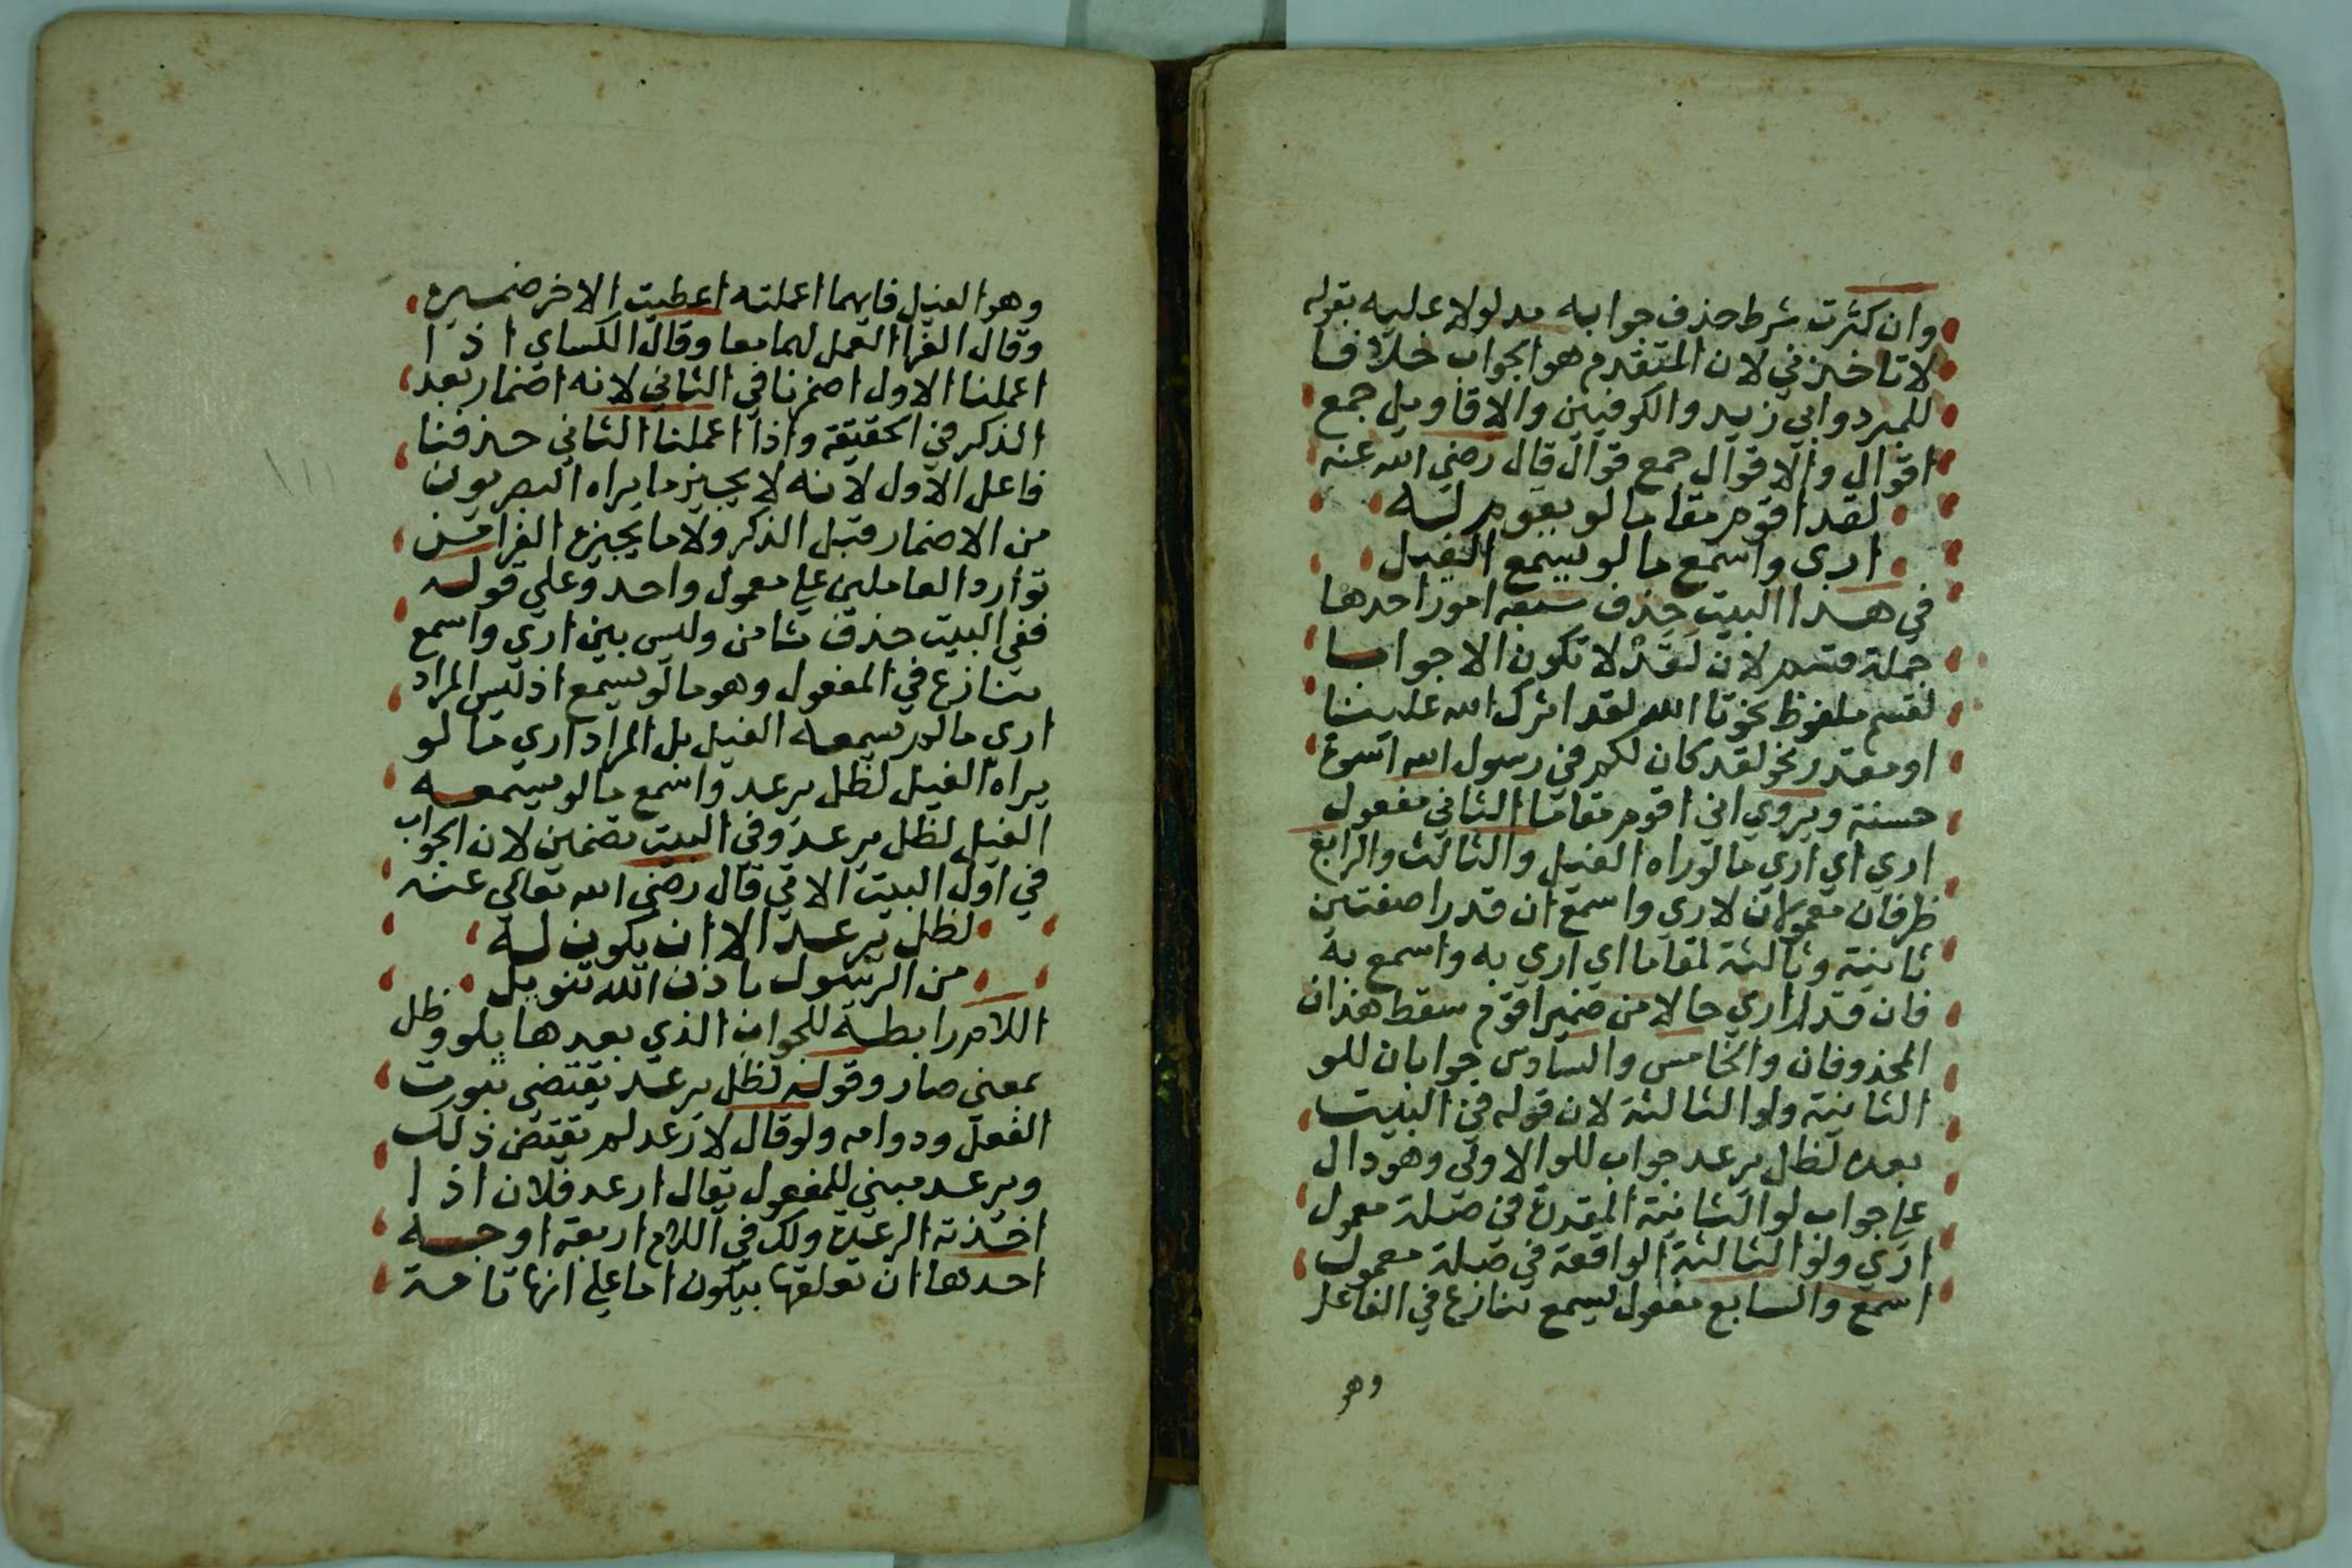 وان كثرت شرط حذف جوابه مدلولا عليه بقوله
لا تاخذني لان المتقدم هو الجواب خلافا
للمبرد وابي زيد والكوفيين والاقاويل جمع
اقوال والاقوال جمع قوال قال رضي الله عنه
لقد اقوم مقاما لو يقوم له
ارى واسمع ما لو يسمع الفيل
في هذا البيت حذف سبعة امور احدها
جملة قسم لان لقد لا تكون الا جوابا
لقسم ملفوظ نحو تا الله لقد اثرك الله علينا
او مقدر نحو لقد كان لكم في رسول الله اسوة
حسنة ويروي اني اقوم مقاما الثاني مفعول
اري اي اري ما لو راه الفيل والثالث والرابع
ظرفان معمولان لاري واسمع ان قدرا صفتين
ثانية وثالثة لمقاما اي اري به واسمع به
فان قدر اري حالا من ضمير اقوم سقط هذان
المحذوفان والخامس والسادس جوابان للو
الثانية ولو الثالثة لان قوله في البيت
بعده لظل يرعد جواب للو الاولى وهو دال
علي جواب لو الثانية المقدرة في صلة معمول
اري ولو الثالثة الواقعة في صلة معمول
اسمع والسابع مفعول يسمع تنازع في الفاعل
وهو
وهو الفيل فايهما اعملته اعطيت الاخر ضميره
وقال الفرا العمل لهما معا وقال الكساي اذا
اعملنا الاول اضمرنا في الثاني لانه اضمار بعد
الذكر في الحقيقة واذا اعملنا الثاني حذفنا
فاعل الاول لانه لا يجيز ما يراه البصريون
من الاضمار قبل الذكر ولا ما يجيزه الفرا من
توارد العاملين علي معمول واحد وعلي قوله
ففي البيت حذف ثامن وليس بين اري واسمع
تنازع في المفعول وهو ما لو يسمع اذ ليس المراد
اري ما لو يسمعه الفيل بل المراد اري ما لو
يراه الفيل لظل يرعد واسمع ما لو يسمعه
الفيل لظل يرعد وفي البيت تضمين لان الجواب
في اول البيت الاتي قال رضي الله تعالي عنه
لظل يرعد الا ان يكون له
من الرسول باذن الله تنويل
اللام رابطة للجواب الذي بعدها بلو وظل
بمعني صار وقوله لظل يرعد يقتضي ثبوت
الفعل ودوامه ولو قال لارعد لم يقتض ذلك
ويرعد مبني للمفعول يقال ارعد فلان اذا
اخذته الرعدة ولك في اللام اربعة اوجه
احدها ان تعلقها بيكون اما علي انها تامة